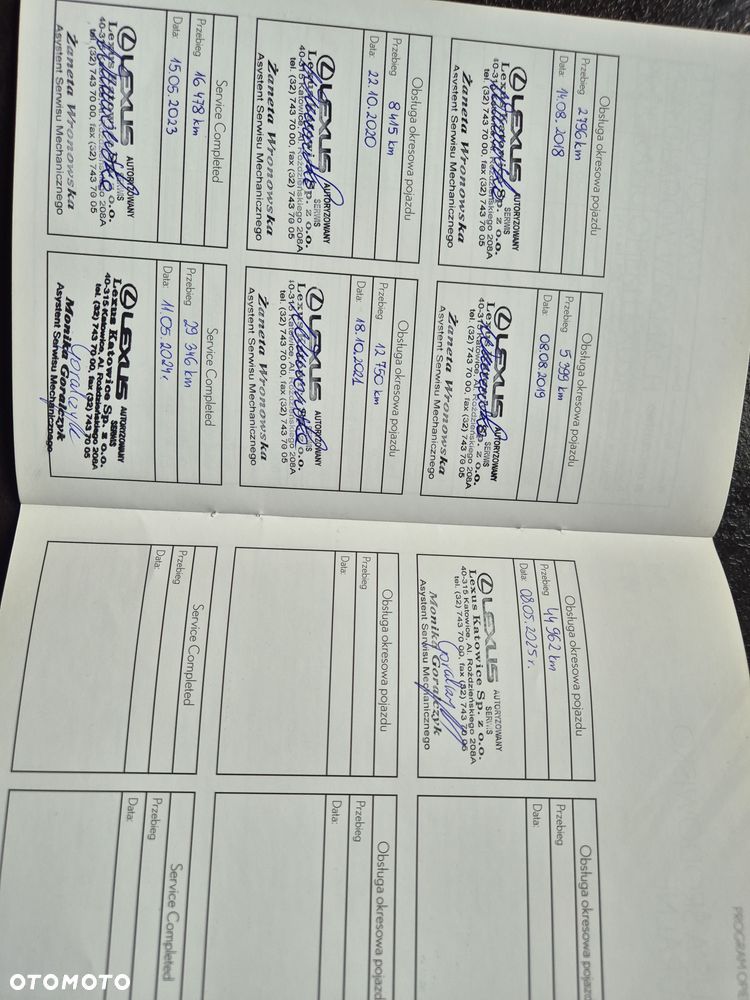 Obsługa okresowa pojazdu
Przebieg 2 796 km
Data: 14.08.2018
LEXUS AUTORYZOWANY SERWIS
Lexus Katowice Sp. z o.o.
40-315 Katowice, Al. Roździeńskiego 208A
tel. (32) 743 70 00, fax (32) 743 70 05
Żaneta Wronowska
Asystent Serwisu Mechanicznego
Obsługa okresowa pojazdu
Przebieg 5 399 km
Data: 08.08.2019
LEXUS AUTORYZOWANY SERWIS
Lexus Katowice Sp. z o.o.
40-315 Katowice, Al. Roździeńskiego 208A
tel. (32) 743 70 00, fax (32) 743 70 05
Żaneta Wronowska
Asystent Serwisu Mechanicznego
Obsługa okresowa pojazdu
Przebieg 8 415 km
Data: 22.10.2020
LEXUS AUTORYZOWANY SERWIS
Lexus Katowice Sp. z o.o.
40-315 Katowice, Al. Roździeńskiego 208A
tel. (32) 743 70 00, fax (32) 743 70 05
Żaneta Wronowska
Asystent Serwisu Mechanicznego
Obsługa okresowa pojazdu
Przebieg 12 750 km
Data: 18.10.2021
LEXUS AUTORYZOWANY SERWIS
Lexus Katowice Sp. z o.o.
40-315 Katowice, Al. Roździeńskiego 208A
tel. (32) 743 70 00, fax (32) 743 70 05
Żaneta Wronowska
Asystent Serwisu Mechanicznego
Service Completed
Przebieg 16 478 km
Data: 15.05.2023
LEXUS AUTORYZOWANY SERWIS
Lexus Katowice Sp. z o.o.
40-315 Katowice, Al. Roździeńskiego 208A
tel. (32) 743 70 00, fax (32) 743 70 05
Żaneta Wronowska
Asystent Serwisu Mechanicznego
Service Completed
Przebieg 29 346 km
Data: 11.05.2024r
LEXUS AUTORYZOWANY SERWIS
Lexus Katowice Sp. z o.o.
40-315 Katowice, Al. Roździeńskiego 208A
tel. (32) 743 70 00, fax (32) 743 70 05
Monika Goralczyk
Goralczyk
Asystent Serwisu Mechanicznego
Obsługa okresowa pojazdu
Przebieg 44 962 km
Data: 08.05.2025 r.
LEXUS AUTORYZOWANY SERWIS
Lexus Katowice Sp. z o.o.
40-315 Katowice, Al. Roździeńskiego 208A
tel. (32) 743 70 00, fax (32) 743 70 05
Monika Goralczyk
Asystent Serwisu Mechanicznego
Obsługa okresowa pojazdu
Przebieg
Data:
Obsługa okresowa pojazdu
Przebieg
Data:
Obsługa okresowa pojazd
Przebieg
Data:
Service Completed
Przebieg
Data:
Service Completed
Przebieg
Data:
PROGRAM
OTOMOTO